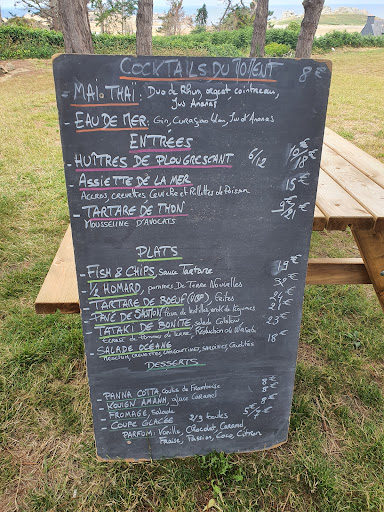 COCKTAILS DU MOMENT 8 €
- MAÏ-THAÏ : Duo de Rhum, orgeat, cointreau,
Jus Ananas
- EAU DE MER : Gin, Curaçao bleu, Jus d'Ananas
ENTRÉES
- HUÎTRES DE PLOUGRESCANT 6/12 10€/18€
- ASSIETTE DE LA MER 15 €
Accras, crevettes, Ceviche et Rillettes de Poisson
- TARTARE DE THON 9€/21€
MOUSSELINE D'AVOCATS
PLATS
- FISH & CHIPS, Sauce Tartare 19 €
- ½ HOMARD, pommes De Terre Nouvelles 32 €
- TARTARE DE BOEUF (VBF), Frites 21 €
- PAVÉ DE SAUMON, de légumes 21 €
- TATAKI DE BONITE, salade 23 €
Écrasé de pommes de terre, Réduction de
- SALADE OCÉANE 18 €
crevettes, sardines, Crudités
DESSERTS
- PANNA COTTA, coulis de Framboise 8 €
- KOUIEN AMANN, glace Caramel 8 €
- FROMAGE, Salade 8 €
- COUPE GLACÉE 2/3 boules 5€/7€
PARFUM: Vanille, Chocolat, Caramel,
Fraise, Passion, Coco, Citron